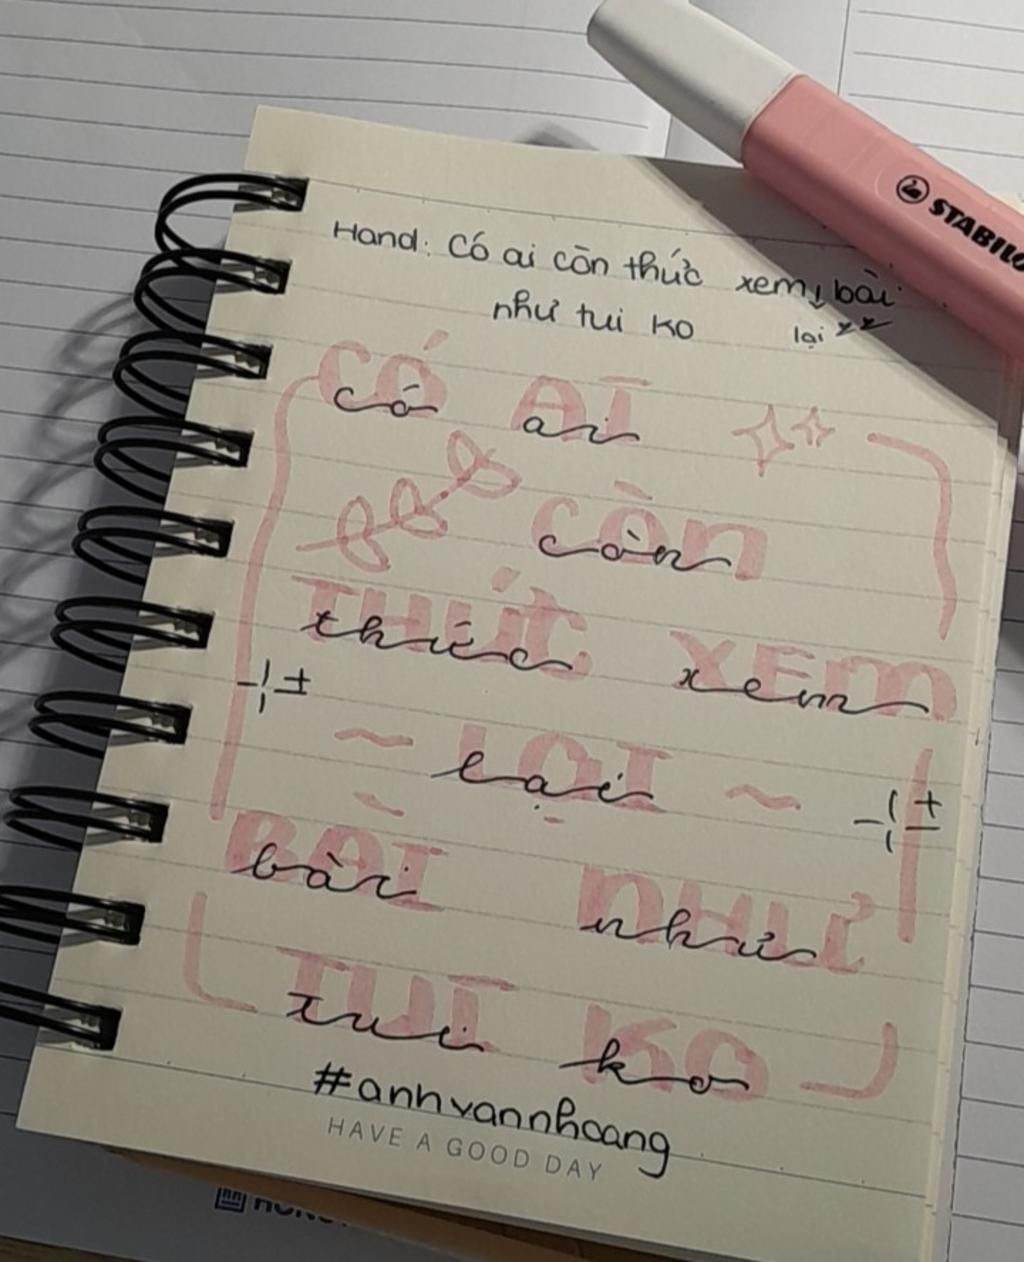 Hand: Có ai còn thức xem bài
lại
như tui ko
CÓ AI
có ai
còn
còn
THỨC XEM
thức xem
~ LẠI ~
lại
BÀI NHƯ
bài như
TUI KO
tui ko
#anhvannhoang
HAVE A GOOD DAY
STABILO